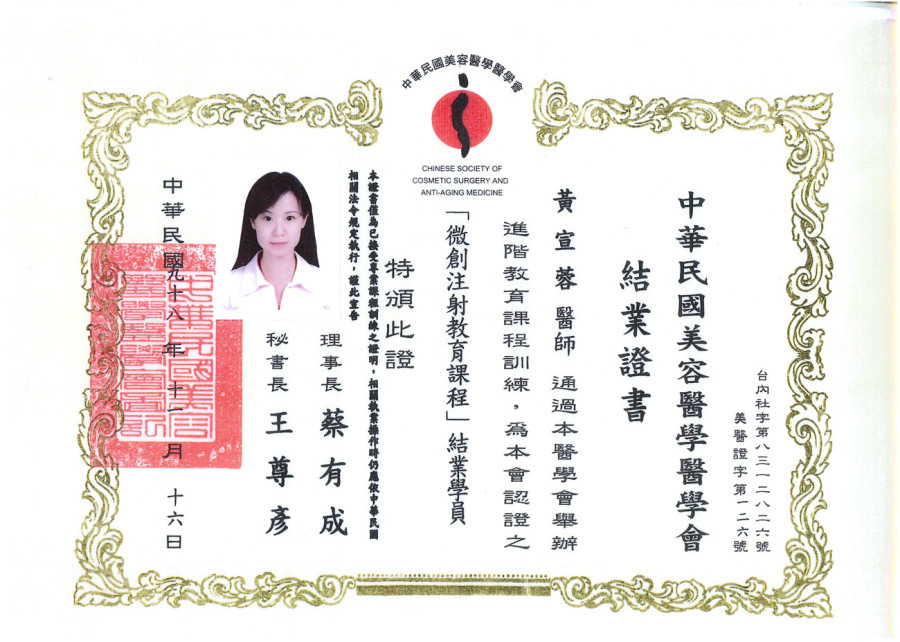 中華民國美容醫學醫學會
CHINESE SOCIETY OF
COSMETIC SURGERY AND
ANTI-AGING MEDICINE
台內社字第八三一二八二六號
美醫證字第一二六號
中華民國美容醫學醫學會
結業證書
黃宣蓉 醫師 通過本醫學會舉辦
進階教育課程訓練,為本會認證之
「微創注射教育課程」結業學員
特頒此證
本證書僅為已接受專業課程訓練之證明,相關執業操作時仍應依中華民國
相關法令規定執行,謹此宣告
理事長 蔡有成
秘書長 王尊彥
中華民國九十八年 十一月 十六日